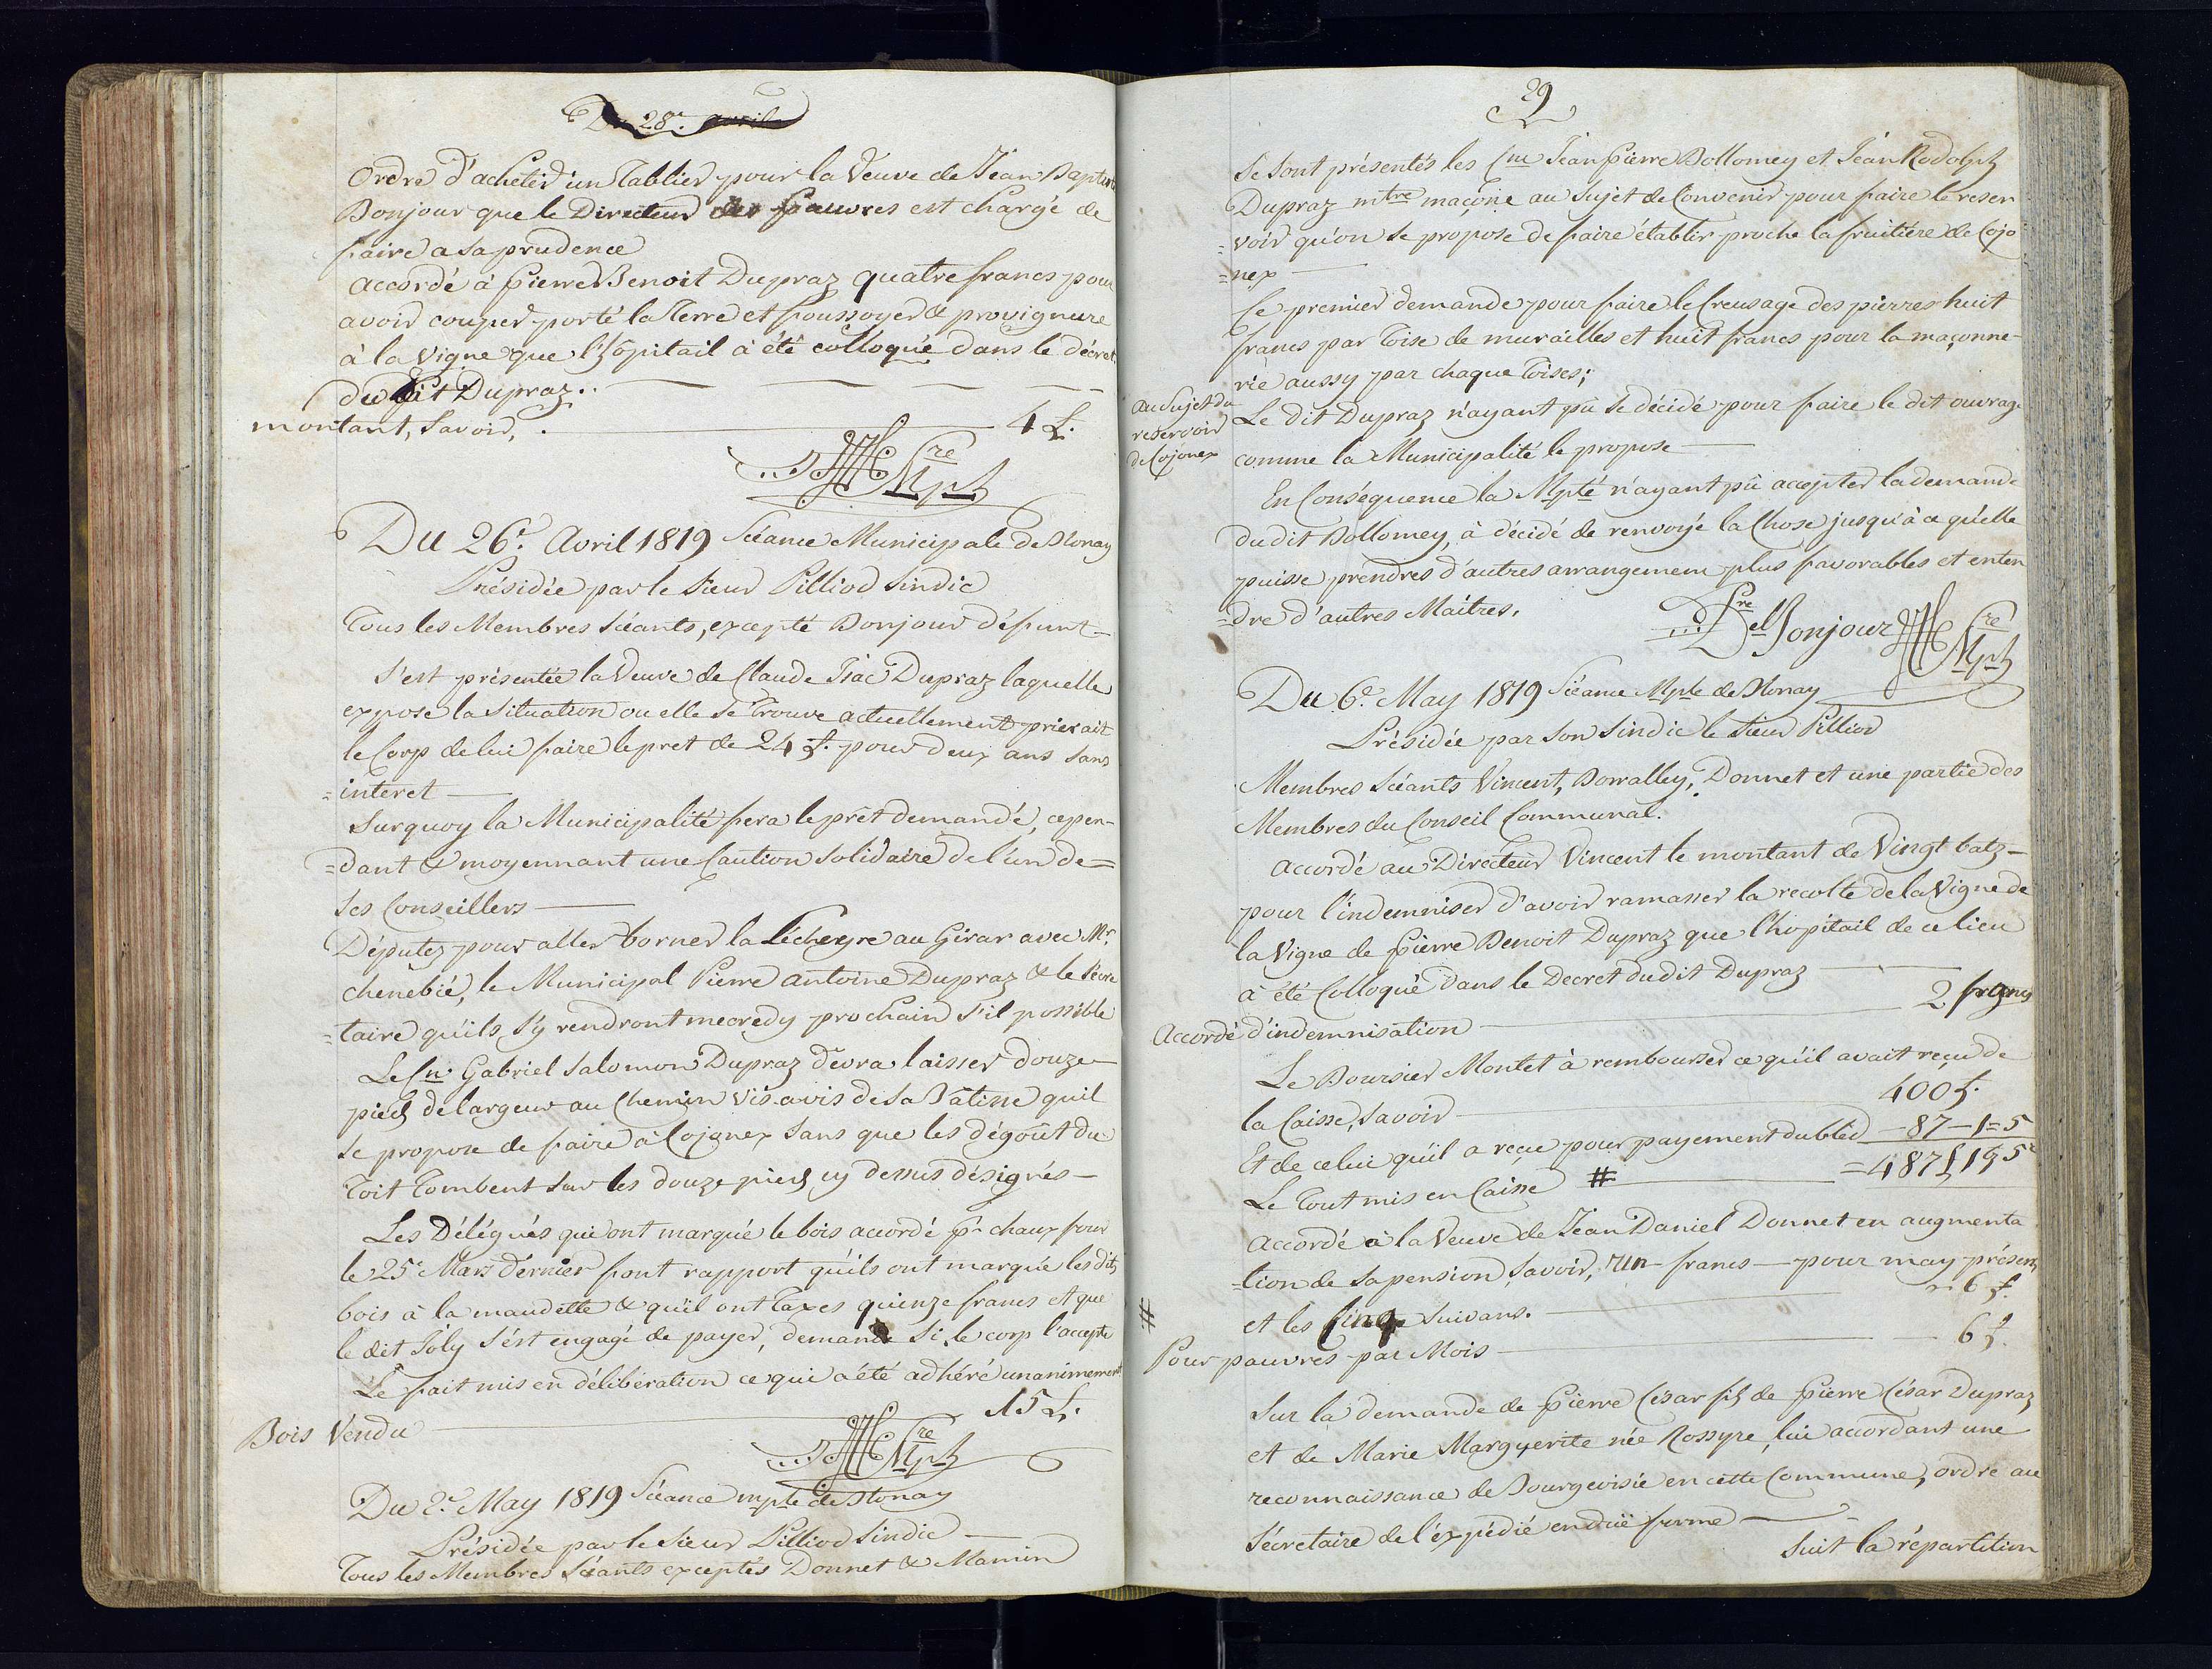 Du 28e. avril
Ordre d'achetér un Tablier pour la Veuve de Jean Baptiste
Bonjour que le Directeur des pauvres est chargé de
faire a sa prudence
accordé à Pierre Benoit Dupraz quatre francs pour
avoir couper porté la Terre et foussoyer & provignure
à la vigne que l'hôpitail à été colloqué dans le décret
du dit Dupraz..
montant, Savoir, . 4 £.
Sre Mplé
Du 26e. Avril 1819 Séance Municipale de Blonay
Présidée par le Sieur Pilliod Sindic
Tous les Membres Séants, excepté Bonjour défunt
S'est présentée la Veuve de Claude Isac Dupraz laquelle
expose la Situation ou elle se trouve actuellement prierait
le Corp de lui faire le pret de 24 £. pour deux ans sans
=interet
Surquoy la Municipalité fera le prêt demandé, cepen-
=dant & moyennant une Caution Solidaire de l'un de=
Ses Conseillers
Députez pour aller borner la Lécheyre au Girar avec Mr.
chenebié, le Municipal Pierre antoine Dupraz & le Sécre
=taire qu'ils s'y rendront mecredy prochain s'il possible
Le Cn. Gabriel Salomon Dupraz devra laisser douze
pieds de largeur au Chemin vis avis de sa Bâtisse quil
se propose de faire à Cojonex sans que les dégoût du
Toit Tombent sur les douze pieds cy dessus désignés
Les Délégués qui ont marqué le bois accordé pr. chaux four
le 25e Mars dérnier font rapport qu'ils ont marqué les dits
bois à la maudette & qu'il ont taxes quinze francs et que
le dit Joly s'ést engagé de payer, demande Si le corp l'accepte
Le fait mis en délibération ce qui a été adhéré unanimement
Bois Vendu 15 £.
Sre Mplé
Du 2e. May 1819 Séance mple de Blonay
Présidée par le Sieur Pilliod Sindic
Tous les Membres Séants exceptés Donnet & Mamin
29
Se Sont présentés les Cns Jean Pierre Dollomey et Jéan Rodolph
Dupraz mtre maçone au sujet de Convenir pour faire le reser
=voir qu'on se propose de faire établir proche la fruitiére de Cojo
=nex
Le premier demande pour faire le Creusage des pierres huit
francs par Toise de murailles et huit francs pour la maçonne-
rie aussy par chaque Toises;
au Sujet du
reservoir
de Cojonex
Le dit Dupraz n'ayant pû se décidé pour faire le dit ouvrage
comme la Municipalité le propose
En Conséquence la Mplté n'ayant pû accepter la demande
du dit Dollomey, à décidé de renvoyé la Chose jusqu'à ce qu'elle
puisse prendres d'autres arrangemens plus favorables et enten
=dre d'autres Maîtres.
Del Bonjour Sre Mplé
Du 6e. May 1819 Séance Mple de Blonay
Présidée par son Sindic le Sieur Pilliod
Membres Séants Vincent, Borralley, Donnet et une partie des
Membres du Conseil Communal.
accordé au Directeur Vincent le montant de Vingt batz
pour l'indemniser d'avoir ramasser la recolte de la Vigne de
la Vigne de Pierre Benoit Dupraz que l'hopitail de ce lieu
à été Colloqué dans le Decret du dit Dupraz
Accordé d'indemnisation 2. francs
Le Boursier Montet à rembourser ce qu'il avait reçu de
la Caisse, Savoir 400 £.
Et de celui qu'il a reçu pour payement du bled - 87 - 1 = 5
Le Tout mis en Caisse # = 487 £ 1 g 5
accordé à la Veuve de Jean Daniel Donnet en augmenta
=tion de sa pension Savoir, un francs pour may présent,
# et les Cinq suivans. 6 £.
Pour pauvres par Mois 6 £.
Sur la demande de Pierre César fils de Pierre César Dupraz
et de Marie Marguerite née Rossyre, lui accordant une
reconnaissance de Bourgeoisie en cette Commune, ordre au
Sécretaire de l'éxpédié en duë forme
Suit la répartition